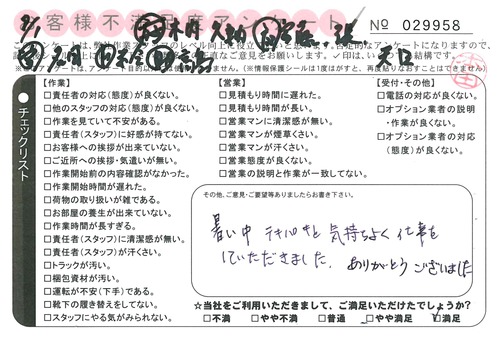 お客様不満足度アンケート
No 029958
8/1
【作業】
□責任者の対応(態度)が良くない。
□他のスタッフの対応(態度)が良くない。
□作業を見ていて不安がある。
□責任者(スタッフ)に好感が持てない。
□お客様への挨拶が出来ていない。
□ご近所への挨拶・気遣いが無い。
□作業開始前の内容確認がなかった。
□作業開始時間が遅れた。
□荷物の取り扱いが雑である。
□お部屋の養生が出来ていない。
□作業時間が長すぎる。
□責任者(スタッフ)に清潔感が無い。
□責任者(スタッフ)が汗くさい。
□トラックが汚い。
□梱包資材が汚い。
□運転が不安(下手)である。
□靴下の履き替えをしてない。
□スタッフにやる気がみられない。
【営業】
□見積もり時間に遅れた。
□見積もり時間が長い。
□営業マンに清潔感が無い。
□営業マンが煙草くさい。
□営業マンが汗くさい。
□営業態度が良くない。
□営業の説明と作業が一致してない。
【受付・その他】
□電話の対応が良くない。
□オプション業者の説明
・作業が良くない。
□オプション業者の対応
(態度)が良くない。
チェックリスト
その他、ご意見・ご要望等ありましたらお書き下さい。
暑い中 テキパキと 気持ちよく 仕事を
していただきました。 ありがとう ございました
☆当社をご利用いただきまして、ご満足いただけたでしょうか?
□不満 □やや不満 □普通 □やや満足 □満足